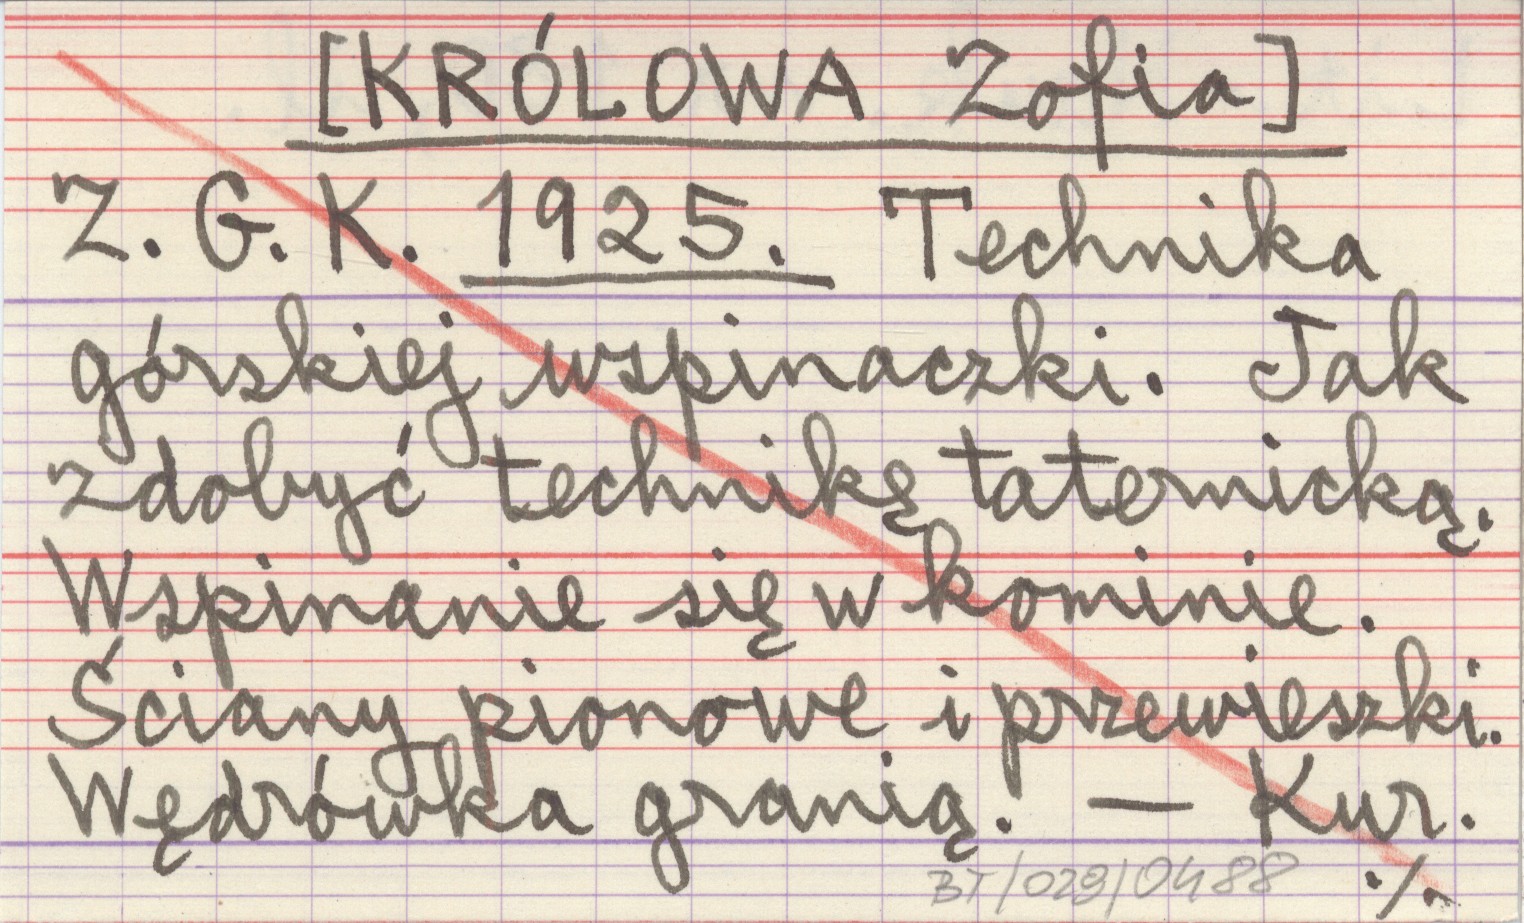 [KRÓLOWA Zofia]
Z. G. K. 1925. Technika
górskiej wspinaczki. Jak
zdobyć technikę taternicką.
Wspinanie się w kominie.
Ściany pionowe i przewieszki.
Wędrówka granią. — Kur.
BT/029/0488 ./.